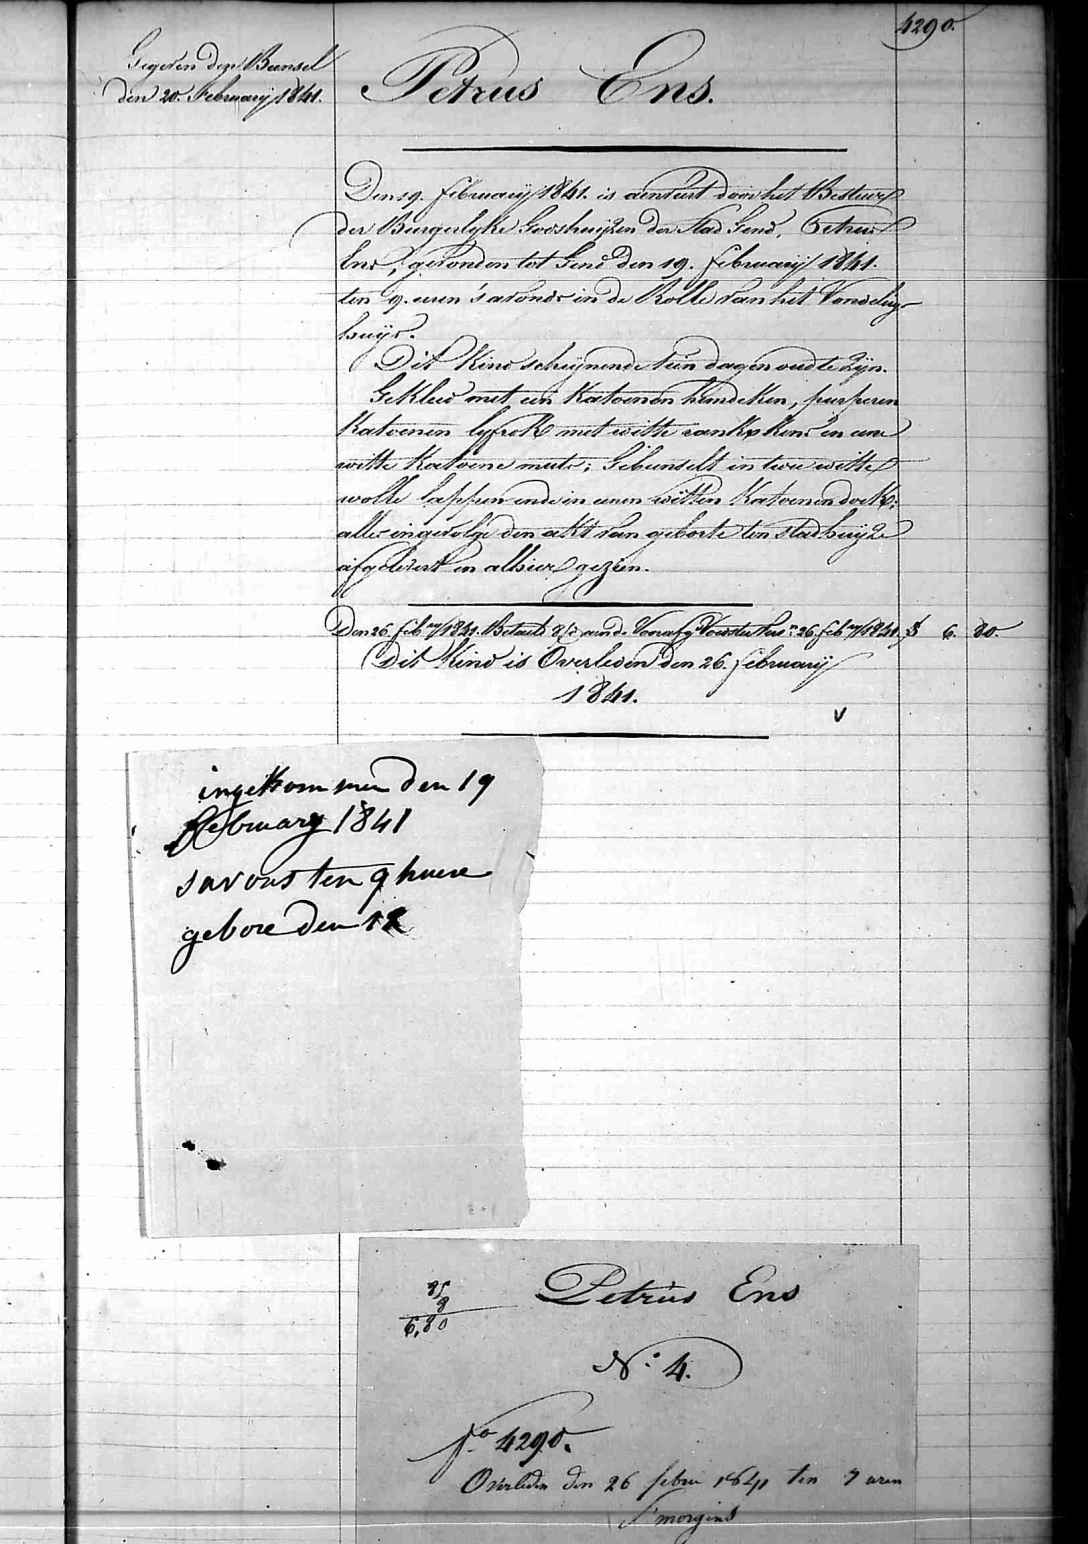 4290.
Gegeven den Bunsel
den 20. February 1841.
Petrus Ens.
Den 19. february 1841. is aenveert door het Bestuer
der Burgerlyke Godshuijzen der Stad Gend, Petrus
Ens, gevonden tot Gend den 19. february 1841.
ten 9. uren 's avonds in de Rolle van het Vondeling-
huijs.
Dit Kind schijnende een dagen oud te zijn.
Gekleed met een Katoenen hemdeken, purperen
Katoenen lyfrok met witte rankxkens en eene
witte Katoene muts; Gebunselt in twee witte
wolle lappen ende in eenen witten Katoenen doek:
alles ingevolge den akt van geborte ten stadhuijze
afgelevert en alhier gezien.
Den 26. feb.ry 1841. Betaelt aende Voedster 26. feb.ry 1841. f 6. 80.
Dit Kind is Overleden den 26. february
1841.
ingekommen den 19
february 1841
savons ten 9 huere
gebore den 18
85
8
6,80
Petrus Ens
N.º 4.
f.º 4290.
Overleden den 26 febru 1841 ten 7 uren
s' morgens